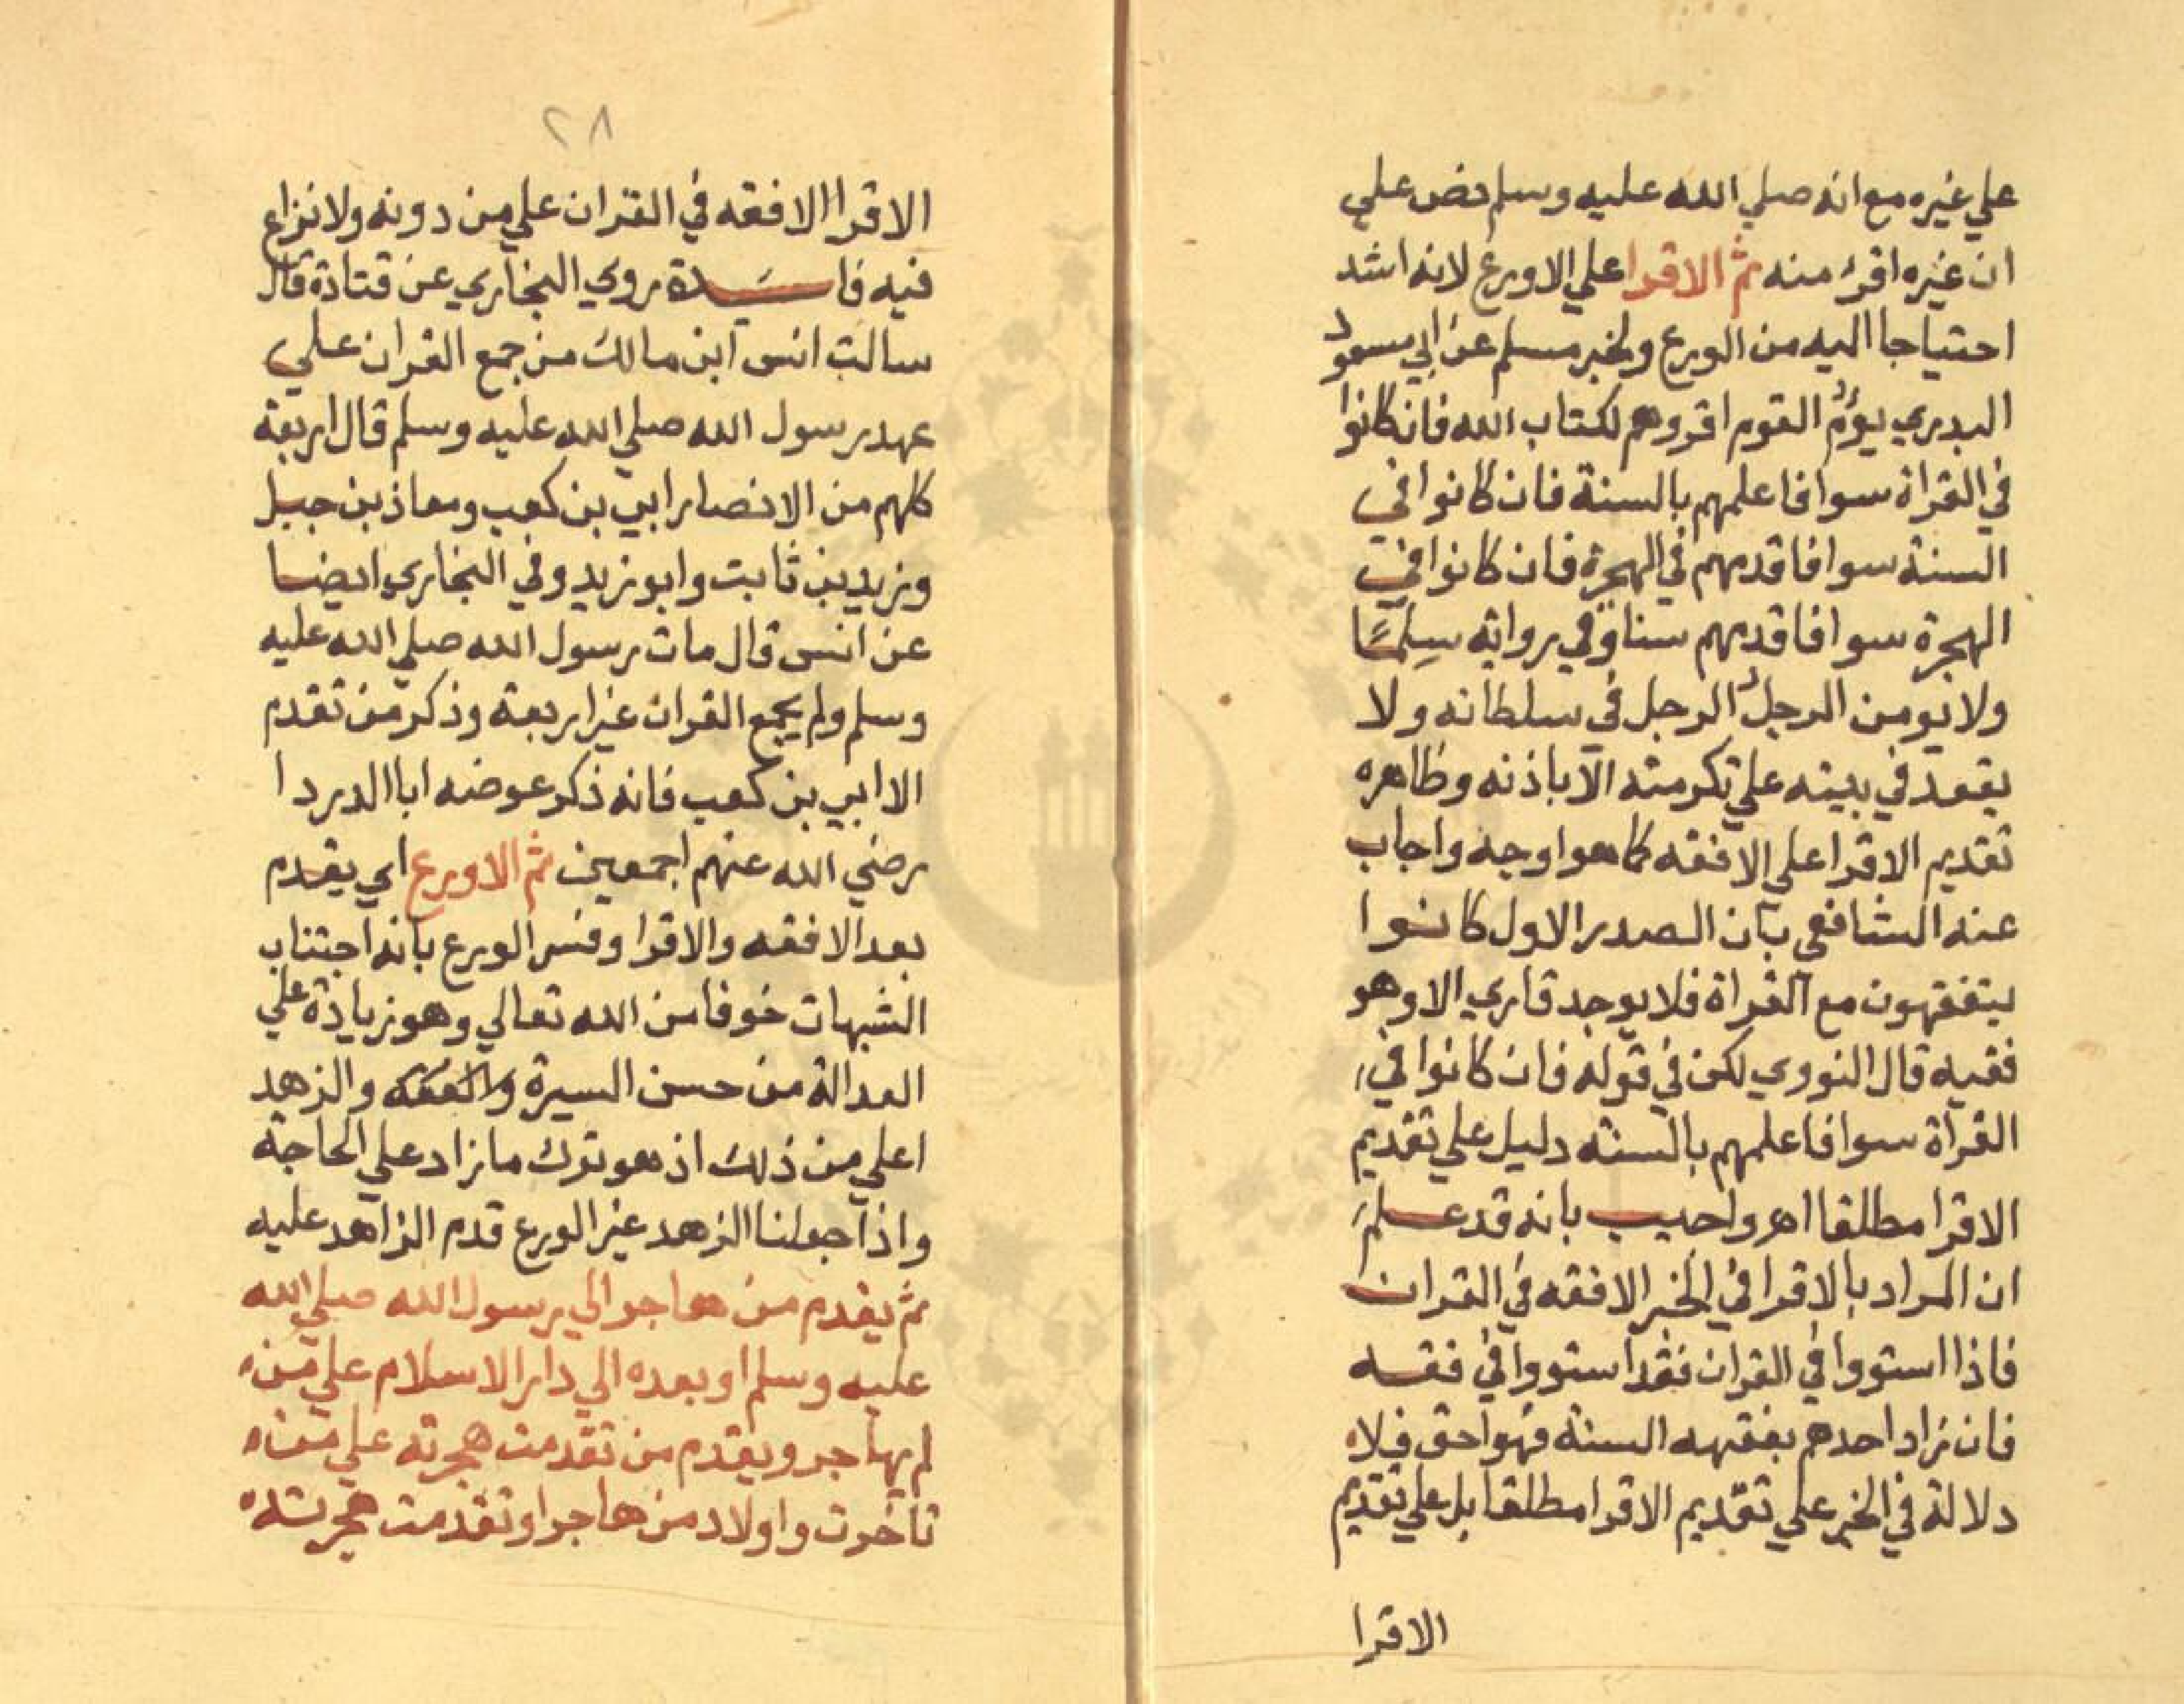 علي غيره مع انه صلي الله عليه وسلم نص علي
ان غيره اقرء منه ثم الاقرا علي الاورع لانه اشد
احتياجا اليه من الورع ولخبر مسلم عن ابي مسعود
البدري يؤم القوم اقروهم لكتاب الله فان كانوا
في القراة سوا فاعلمهم بالسنة فان كانوا في
السنة سوا فاقدمهم في الهجرة فان كانوا في
الهجرة سوا فاقدمهم سنا وفي رواية سلما
ولا يومن الرجل الرجل في سلطانه ولا
يقعد في بيته علي تكرمته الا باذنه وظاهره
تقديم الاقرا علي الافقه كما هو اوجه واجاب
عنه الشافعي بان الصدر الاول كانوا
يتفقهون مع القراة فلا يوجد قاري الا وهو
فقيه قال النووي لكن في قوله فان كانوا في
القراة سوا فاعلمهم بالسنه دليل علي تقديم
الاقرا مطلقا اهر واجيب بانه قد علم
ان المراد بالاقرا في الخبر الافقه في القران
فاذا استووا في القران فقد استووا في فقه
فان زاد احدهم بفقهه السنة فهو احق فلا
دلالة في الخبر علي تقديم الاقرا مطلقا بل علي تقديم
الاقرا
٢٨
الاقرا الافقه في القران علي من دونه ولا نزاع
فيه فايدة روي البخاري عن قتادة قال
سالت انس ابن مالك من جمع القران علي
عهد رسول الله صلي الله عليه وسلم قال اربعة
كلهم من الانصار ابي بن كعب ومعاذ بن جبل
وزيد بن ثابت وابو زيد وفي البخاري ايضا
عن انس قال مات رسول الله صلي الله عليه
وسلم ولم يجمع القران غير اربعة وذكر من تقدم
الا ابي بن كعب فانه ذكر عوضه ابا الدردا
رضي الله عنهم اجمعين ثم الاورع اي يقدم
بعد الافقه والاقرا وفسر الورع بانه اجتناب
الشبهات خوفا من الله تعالي وهو زيادة علي
العدالة من حسن السيرة والعفه والزهد
اعلي من ذلك اذ هو ترك ما زاد علي الحاجة
واذا جعلنا الزهد غير الورع قدم الزاهد عليه
ثم يقدم من هاجر الي رسول الله صلي الله
عليه وسلم او بعده الي دار الاسلام علي من
لم يهاجر ويقدم من تقدمت هجرته علي من
تاخرت واولاد من هاجر او تقدمت هجرته